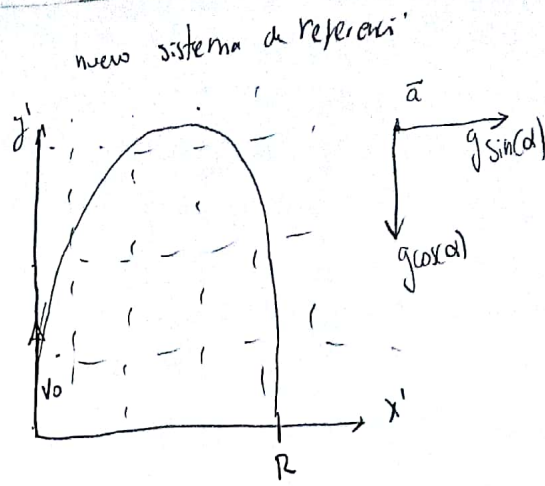 nuevo sistema de referenci
y'
a⃗
g sin(α)
g cos(α)
v₀
x'
R